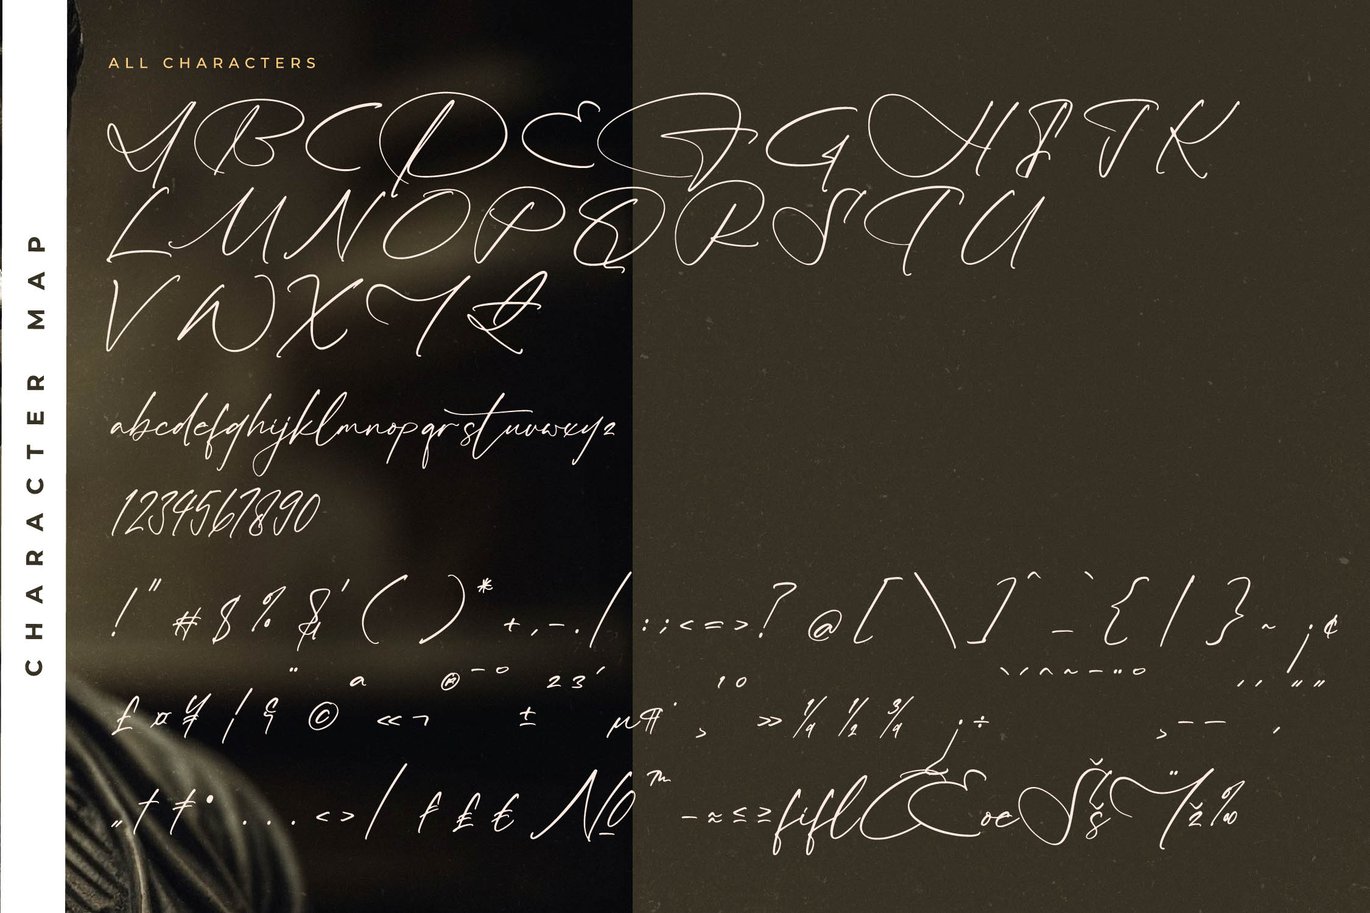 CHARACTER MAP
ALL CHARACTERS
A B C D E F G H I J K
L M N O P Q R S T U
V W X Y Z
abcdefghijklmnopqrstuvwxyz
1234567890
! " # $ % & ' ( ) * + , - . / : ; < = > ? @ [ \ ] ^ _ ` { | } ~ ¡ ¢
£ ¤ ¥ ¦ § ¨ © ª « ¬ ® ¯ ° ± ² ³ ´ µ ¶ · ¸ ¹ º » ¼ ½ ¾ ¿ ÷ ˋ ˊ ˆ ˜ ¯ ¨ ° ¸ – — ‘ ’ “ ”
„ † ‡ • … ‹ › ⁄ ƒ ₤ € № ™ − ≈ ≤ ≥ fi fl Œ œ Š š Ÿ ž ‰